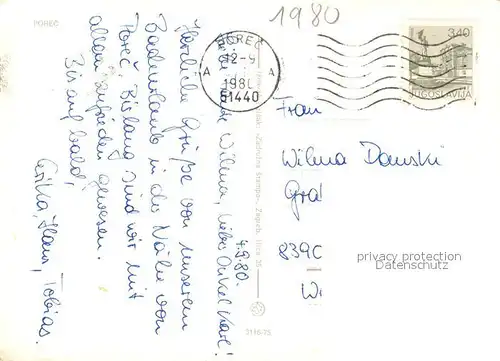 1980
POREČ
POREČ
12-9
A A
1980
51440
3.40
JUGOSLAVIJA
4.9.80.
Wilma, lieber Onkel Karl!
Herzliche Grüße von unserem
Badeurlaub in der Nähe von
Poreč. Bislang sind wir mit
allem zufrieden gewesen.
Bis auf bald,
Erika, Hans, Tobias.
Zagreb, Ilica 35
Frau
Wilma Danski
Gra
839
W
privacy protection
Datenschutz